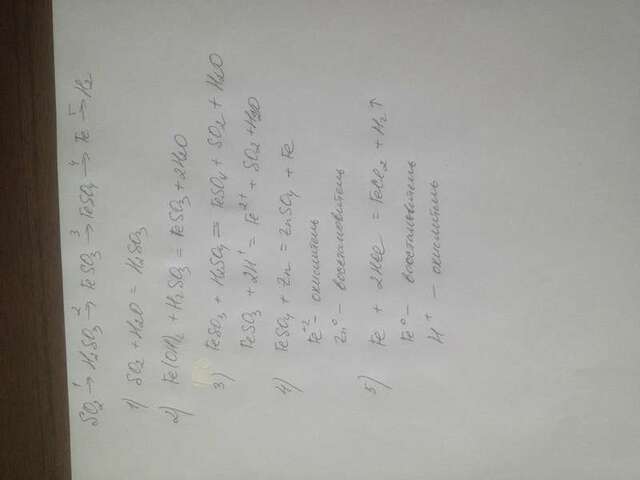 SO2 →¹ H2SO3 →² FeSO3 →³ FeSO4 →⁴ Fe →⁵ H2
1) SO2 + H2O = H2SO3
2) Fe(OH)2 + H2SO3 = FeSO3 + 2H2O
3) FeSO3 + H2SO4 = FeSO4 + SO2 + H2O
FeSO3 + 2H⁺ = Fe²⁺ + SO2 + H2O
4) FeSO4 + Zn = ZnSO4 + Fe
Fe⁺² – окислитель
Zn⁰ – восстановитель
5) Fe + 2HCl = FeCl2 + H2 ↑
Fe⁰ – восстановитель
H⁺ – окислитель